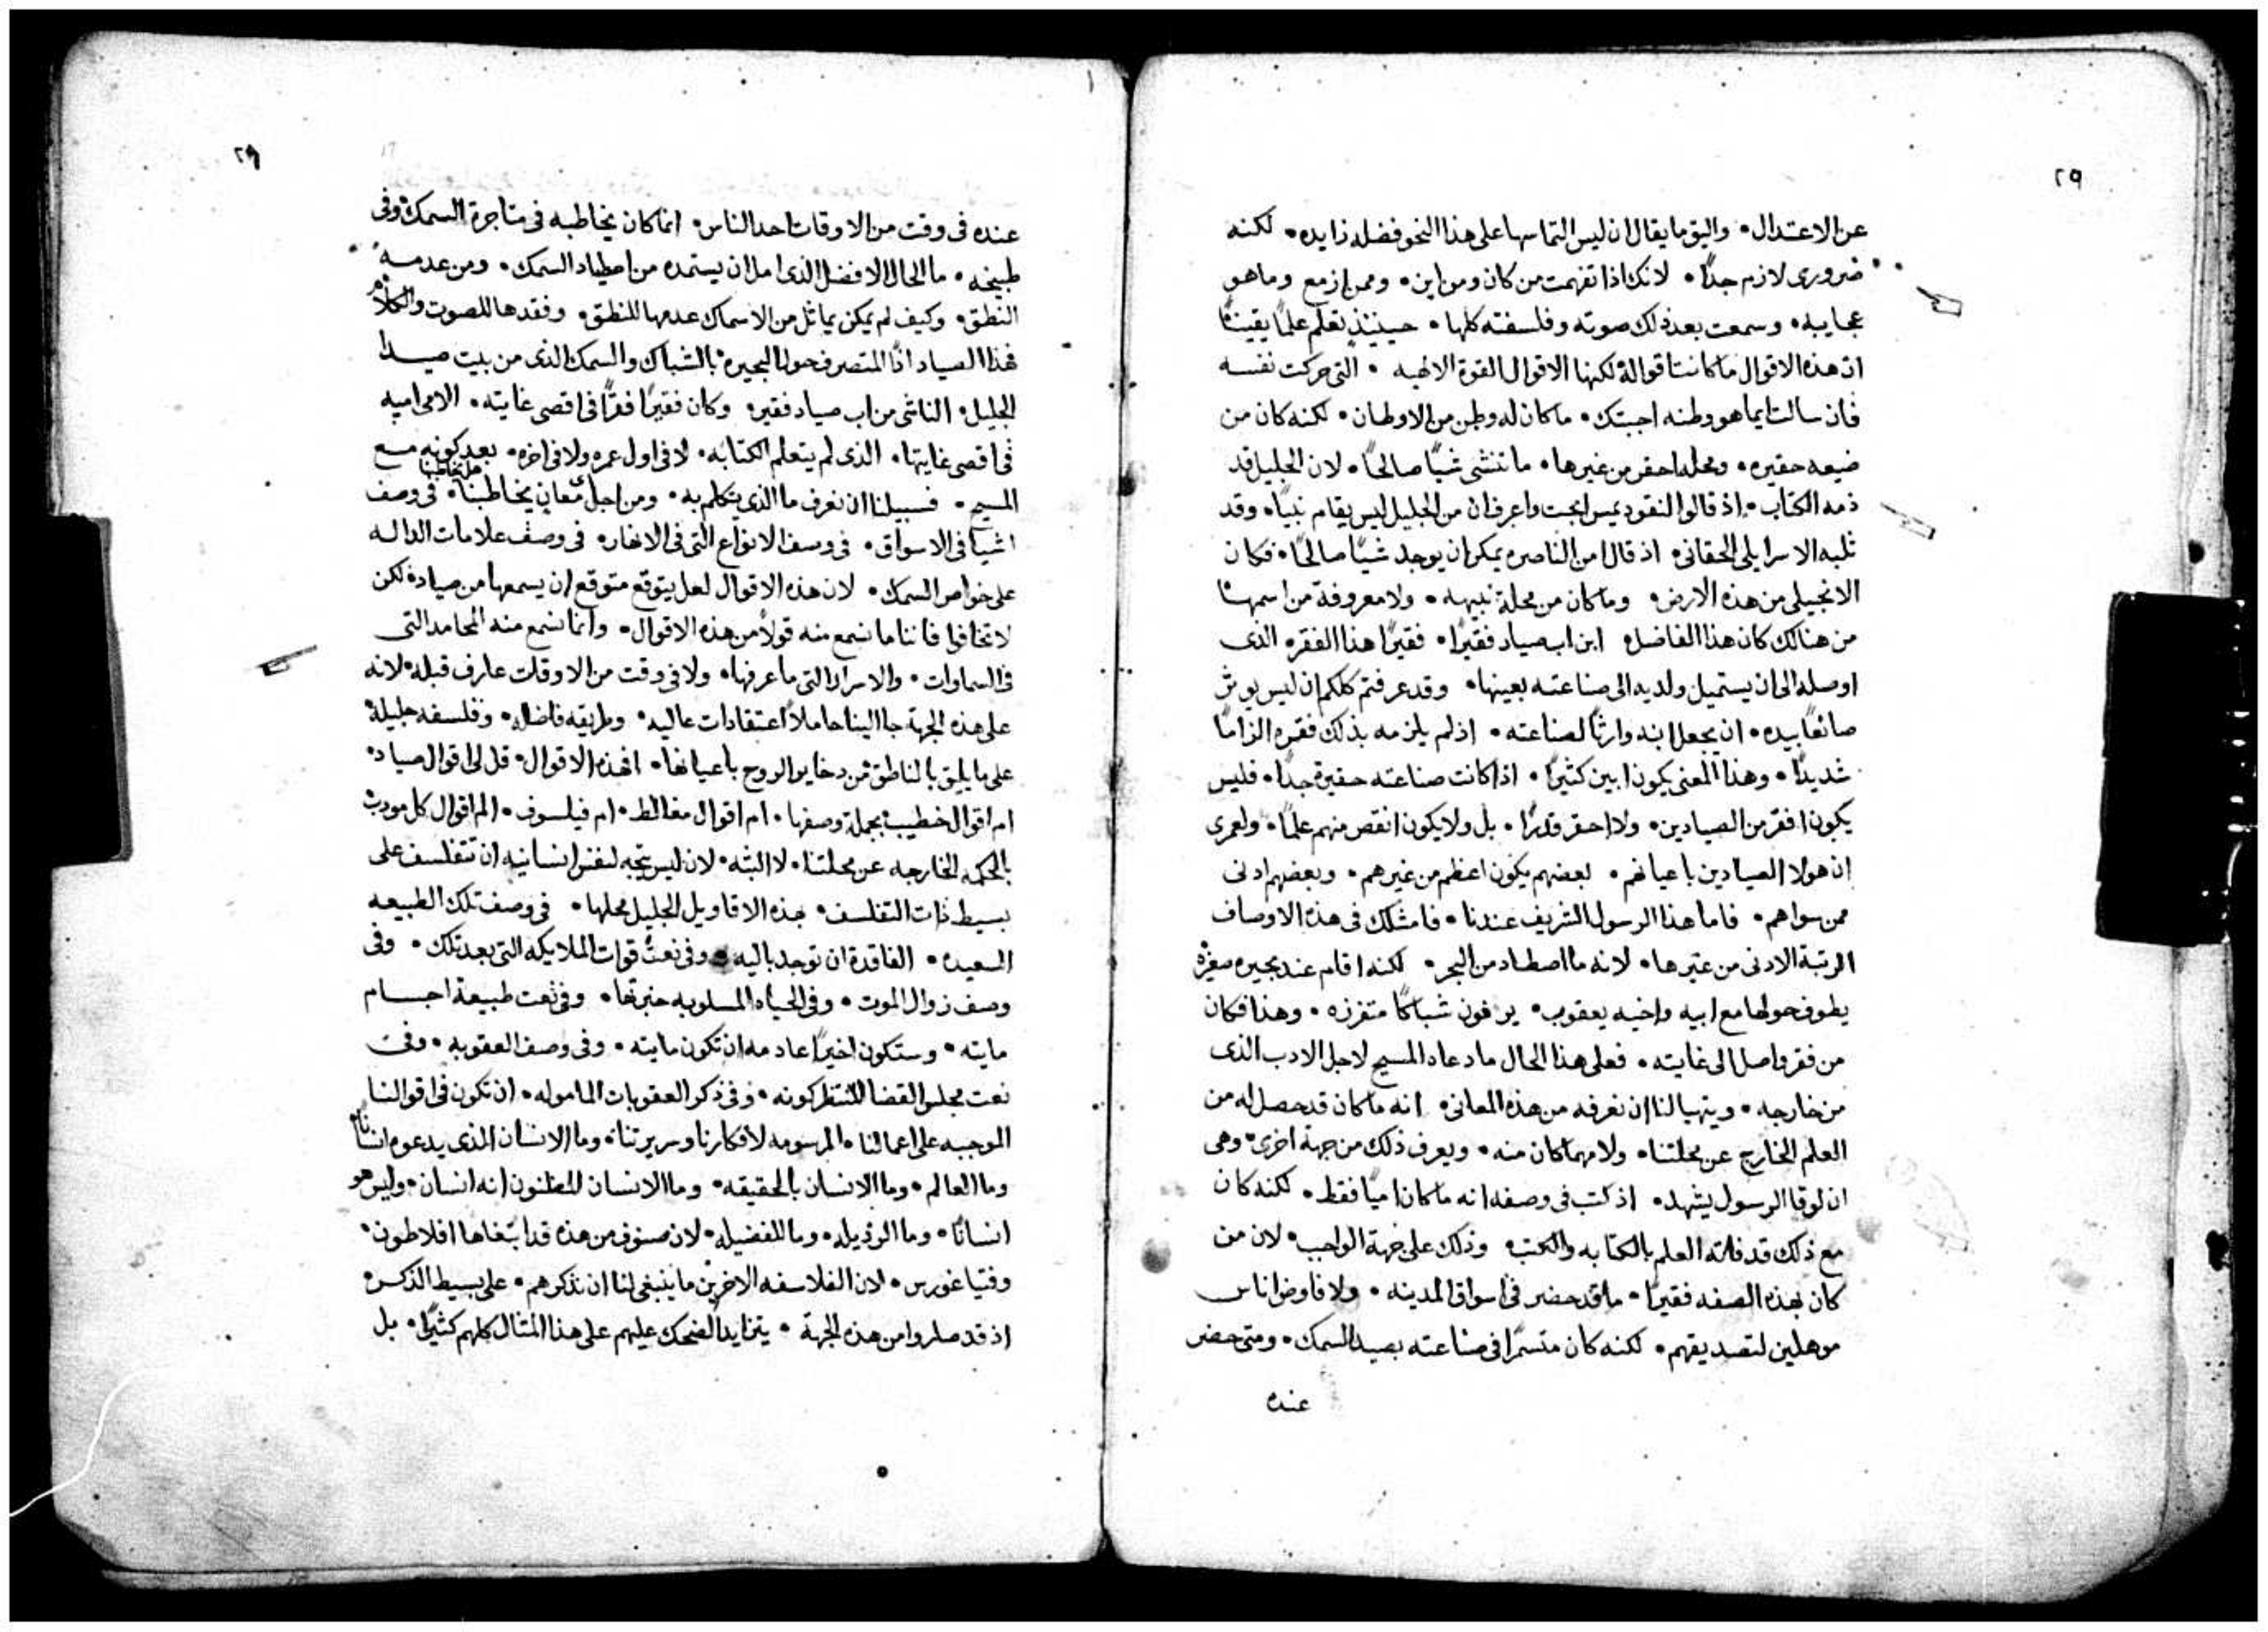 ٢٩
عن الاعتدال • واليق ما يقال ان ليس التماسها على هذا النحو فضله زايده • لكنه
ضروري لازم جدًا • لانك اذا تفهمت من كان ومن اين • وممن ازمع وما هو
عجايبه • وسمعت بعد ذلك صوته وفلسفته كلها • حينيذٍ تعلم علمًا يقينًا
ان هذه الاقوال ما كانت اقواله لكنها الاقوال القوة الالهيه • التي حركت نفسه
فان سالت ايما هو وطنه اجبتك • ما كان له وطن من الاوطان • لكنه كان من
ضيعه حقيره • ومحله احقر من غيرها • ما تنشى شيًا صالحًا • لان الجليل قد
ذمه الكتاب • اذ قالوا لنقوديمس ابحت واعرف ان من الجليل ليس يقام نبيًا • وقد
ثلبه الاسرايلي الحقاني • اذ قال امن الناصره يمكن ان يوجد شيًا صالحًا • فكان
الانجيلي من هذه الارض • وما كان من محلة نبيهه • ولا معروفة من اسمها
من هنالك كان هذا الفاضل • ابن اب صياد فقيرًا • فقيرًا هذا الفقره الذي
اوصله الى ان يستميل ولديه الى صناعته بعينها • وقد عرفتم كلكم ان ليس يوثر
صانعًا بيده • ان يجعل ابنه وارثًا لصناعته • اذ لم يلزمه بذلك فقره الزامًا
شديدًا • وهذا المعنى يكون ابين كثيرًا • اذا كانت صناعته حقيرة جدًا • فليس
يكون افقر من الصيادين • ولا احقر قدرًا • بل ولا يكون انقص منهم علمًا • ولعمري
ان هولا الصيادين باعيانهم • بعضهم يكون اعظم من غيرهم • وبعضهم ادنى
ممن سواهم • فاما هذا الرسول الشريف عندنا • فامتلك في هذه الاوصاف
الرتبة الادنى من غيرها • لانه ما اصطاد من البحر • لكنه اقام عند بحيره صغيره
يطوف حولها مع ابيه واخيه يعقوب • يرفون شباكًا متفزره • وهذا فكان
من فقر واصل الى غايته • فعلى هذا الحال ما دعاه المسيح لاجل الادب الذي
من خارجه • ويتهيا لنا ان نعرفه من هذه المعاني • انه ما كان قد حصل له من
العلم الخارج عن محلتنا • ولا مهما كان منه • ويعرف ذلك من جهة اخرى • وهي
ان لوقا الرسول يشهد • اذ كتب في وصفه انه ما كان اميًا فقط • لكنه كان
مع ذلك قد فاته العلم بالكتابه والكتب • وذلك على جهة الواجب • لان من
كان بهذه الصفه فقيرًا • ما قد حضر في اسواق المدينه • ولا فاوض اناس
موهلين لتصديقهم • لكنه كان متسمرًا في صناعته بصيد السمك • ومتى حضر
عنده
٢٩
عنده في وقت من الاوقات احد الناس • انما كان يخاطبه في متاجرة السمك وفي
طبيخه • ما الحال الافضل الذي امل ان يستمده من اصطياد السمك • ومن عدمه
النطق • وكيف لم يمكن يماثل من الاسماك عدمها للنطق • وفقدها للصوت والكلام
فهذا الصياد اذًا المتصرف حول البحيره بالشباك والسمك الذي من بيت صيدا
الجليل • الناشي من اب صياد فقير • وكان فقيرًا فقرًا في اقصى غايته • الامي اميه
في اقصى غايتها • الذي لم يتعلم الكتابه • لا في اول عمره ولا في اخره • بعد كونه مع
المسيح • فسبيلنا ان نعرف ما الذي يتكلم به • ومن اجل معان يخاطبنا • في وصف
اشيا في الاسواق • في وصف الانواع التي في الانهار • في وصف علامات الداله
على خواص السمك • لان هذه الاقوال لعل يتوقع متوقع ان يسمعها من صياد • لكن
لا تخافوا فاننا ما نسمع منه قولاً من هذه الاقوال • وانما نسمع منه المحامد التي
في السماوات • والاسرار التي ما عرفها • ولا في وقت من الاوقات عارف قبله • لانه
على هذه الجهة جا الينا حاملاً اعتقادات عاليه • وطريقه فاضله • وفلسفه جليلة
على ما يليق بالناطق من دخاير الروح باعيانها • افهذه الاقوال • قل لي اقوال صياد •
ام اقوال خطيب بجملة وصفها • ام اقوال مغالط • ام فيلسوف • الم اقوال كل مودب
بالحكمه الخارجه عن محلتنا • لا البته • لان ليس يتجه لنفس انسانيه ان تتفلسف على
بسيط ذات التفلسف • بهذه الاقاويل الجليل محلها • في وصف تلك الطبيعه
السعيده • الفاقدة ان توجد باليه • وفي نعت قوات الملايكه التي بعد تلك • وفي
وصف زوال الموت • وفي الحياه المسلوبه • وفي نعت طبيعة اجسام
مايته • وستكون اخيرًا عادمه ان تكون مايته • وفي وصف العقوبه • وفي
نعت مجلس القضا المنتظر كونه • وفي ذكر العقوبات الماموله • ان تكون في اقوالنا
الموجبه على اعمالنا • المرسومه لافكارنا وسريرتنا • وما الانسان الذي يدعوه انسانا
وما العالم • وما الانسان بالحقيقه • وما الانسان المظنون انه انسان • وليس هو
انسانًا • وما الرذيله • وما للفضيله • لان صنوف من هذه قد ابتغاها افلاطون •
وفتياغورس • لان الفلاسفه الاخرين ما ينبغي لنا ان نذكرهم • على بسيط الذكر
اذ قد صاروا من هذه الجهة • يتزايد الضحك عليهم على هذا المثال كلهم كثيرًا • بل